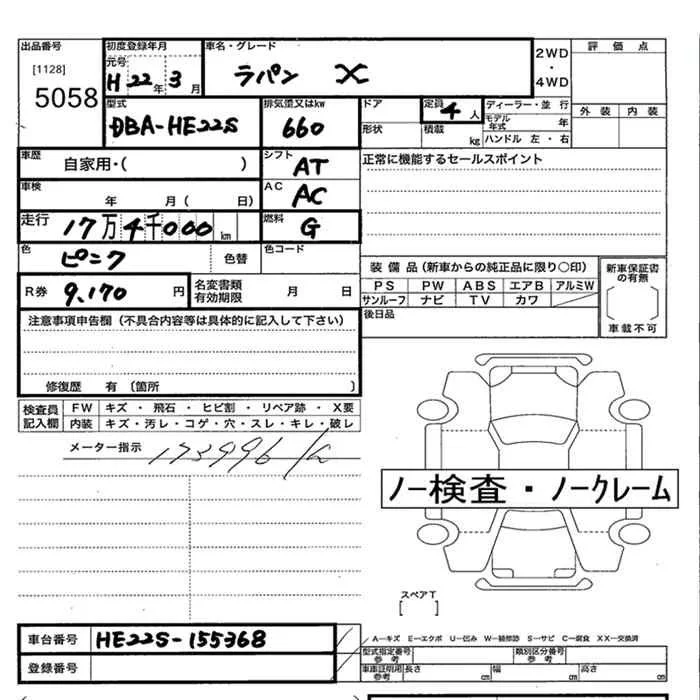 出品番号 初度登録年月 車名・グレード 2WD ・ 4WD 評価点
[1128] 元号 H 22年 3月 ラパン X
5058 型式 排気量又はkw ドア 定員 4人 ディーラー・並行 外装 内装
DBA-HE22S 660 形状 積載 kg モデル年式 年 ハンドル 左・右
車歴 自家用・( ) シフト AT 正常に機能するセールスポイント
車検 年 月( 日) AC AC
走行 17万4千000km 燃料 G
色 ピンク 色替 色コード
装備品(新車からの純正品に限り〇印) 新車保証書の有無
R券 9,170円 名変書類有効期限 月 日 PS PW ABS エアB アルミW
サンルーフ ナビ TV カワ
注意事項申告欄(不具合内容等は具体的に記入して下さい) 後日品 車載不可
修復歴 有 〔箇所 〕
検査員記入欄 FW キズ・飛石・ヒビ割・リペア跡・X要
内装 キズ・汚レ・コゲ・穴・スレ・キレ・破レ
メーター指示 173996
ノー検査・ノークレーム
スペアT
[ ]
車台番号 HE22S-155368 A―キズ E―エクボ U―凹み W―補修跡 S―サビ C―腐食 XX―交換済
登録番号 型式指定番号 参考 類別区分番号 参考
車車証明用 参考 長さ cm 幅 cm 高さ cm